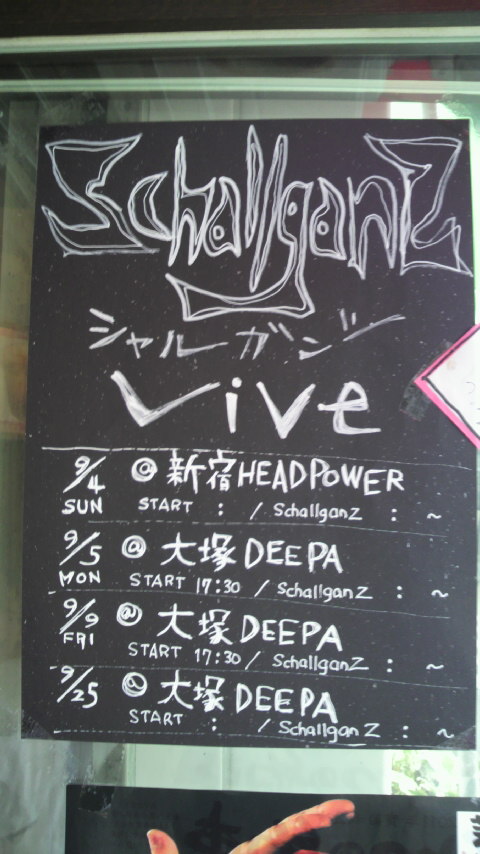 SchallganZ
シャルガンヅ
Live
9/4 SUN @ 新宿HEADPOWER
START : / SchallganZ : ~
9/5 MON @ 大塚 DEEPA
START 17:30 / SchallganZ : ~
9/9 FRI @ 大塚DEEPA
START 17:30 / SchallganZ : ~
9/25 @ 大塚 DEEPA
START : / SchallganZ : ~